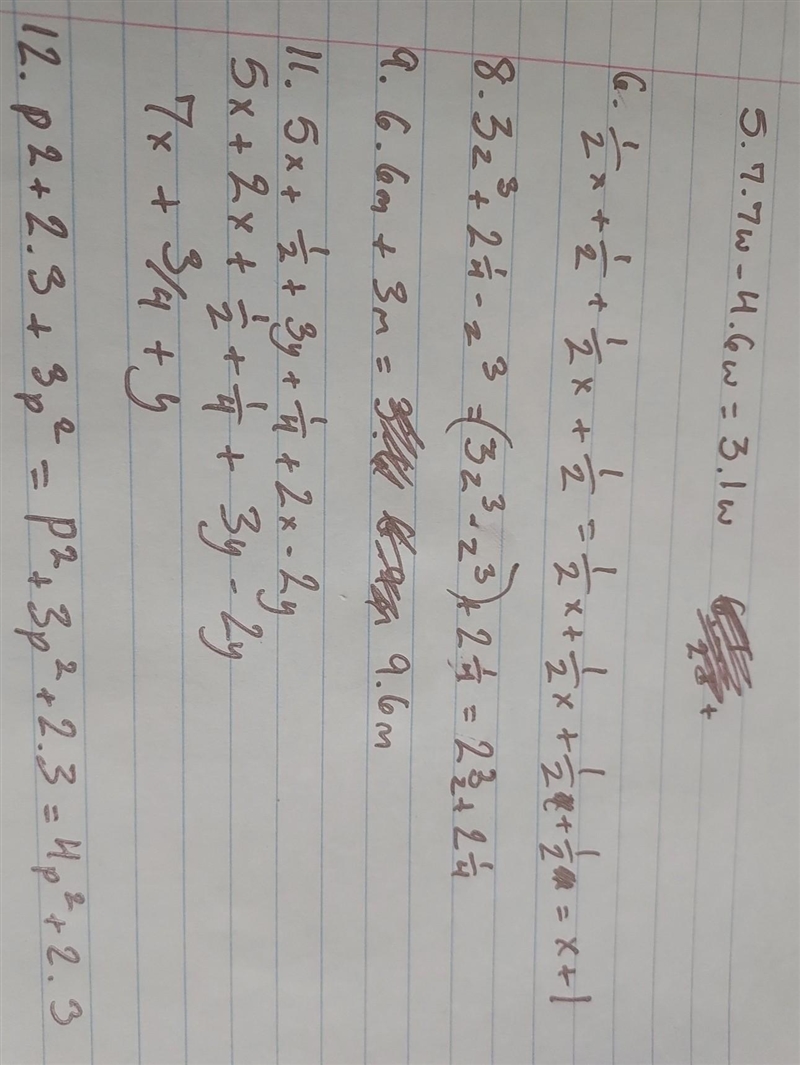 5. 7.7w - 4.6w = 3.1w
6. 1/2 x + 1/2 + 1/2 x + 1/2 = 1/2 x + 1/2 x + 1/2 + 1/2 = x + 1
8. 3z³ + 2 1/4 - z³ = (3z³ - z³) + 2 1/4 = 2z³ + 2 1/4
9. 6.6m + 3m = 9.6m
11. 5x + 1/2 + 3y + 1/4 + 2x - 2y
5x + 2x + 1/2 + 1/4 + 3y - 2y
7x + 3/4 + y
12. p2 + 2.3 + 3p² = p² + 3p² + 2.3 = 4p² + 2.3